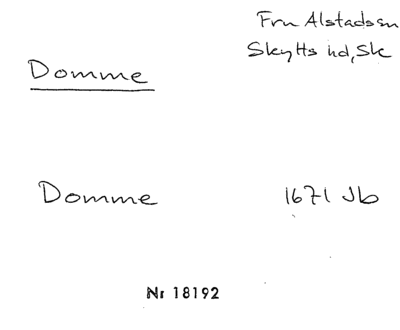 Fru Alstads sn
Skytts hd, Sk
Domme
Domme 1671 Jb
Nr 18192